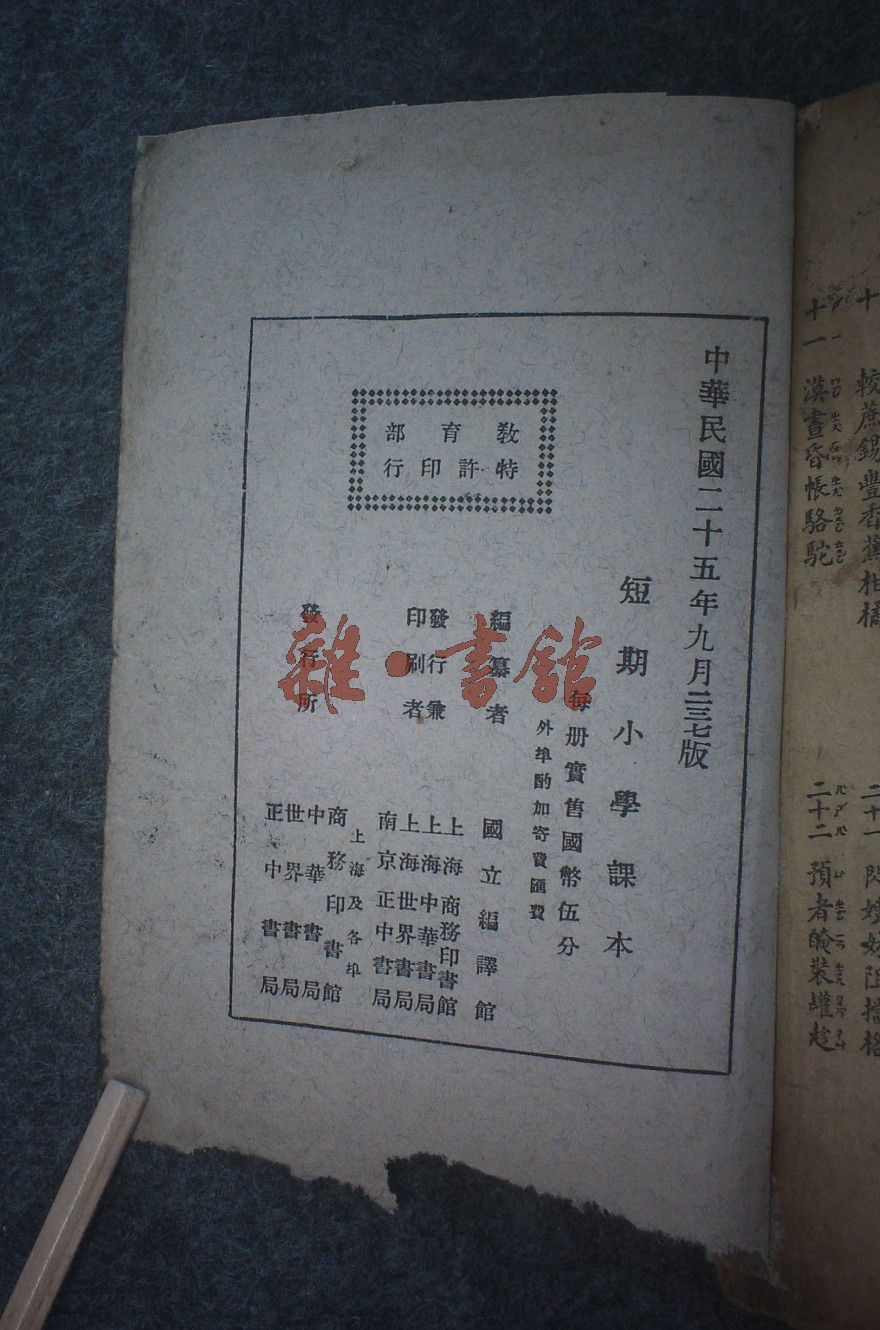 十 較蔗錫豐香蕉柑橘
十一 漢晝昏帳駱駝
二十二 預者醃裝罐趁
中華民國二十五年九月二三七版
短期小學課本
每册實售國幣伍分
外埠酌加寄費匯費
編纂者 國立編譯館
發行兼印刷者
上海商務印書館
上海中華書局
上海世界書局
南京正中書局
發行所
上海及各埠
商務印書館
中華書局
世界書局
正中書局
教育部
特許印行
雜·書館